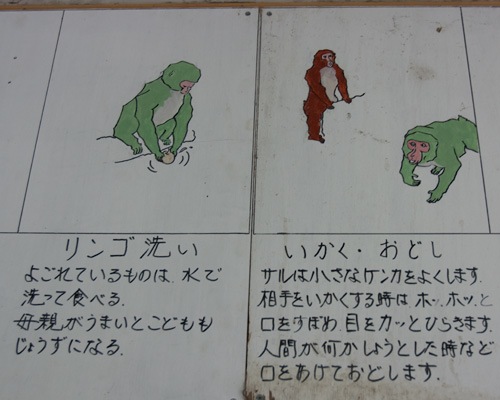 リンゴ洗い
よごれているものは、水で
洗って食べる.
母親がうまいとこどもも
じょうずになる.
いかく・おどし
サルは小さなケンカをよくします.
相手をいかくする時は ホッ、ホッ、と
口をすぼめ、目をカッとひらきます.
人間が何かしようとした時など
口をあけておどします.